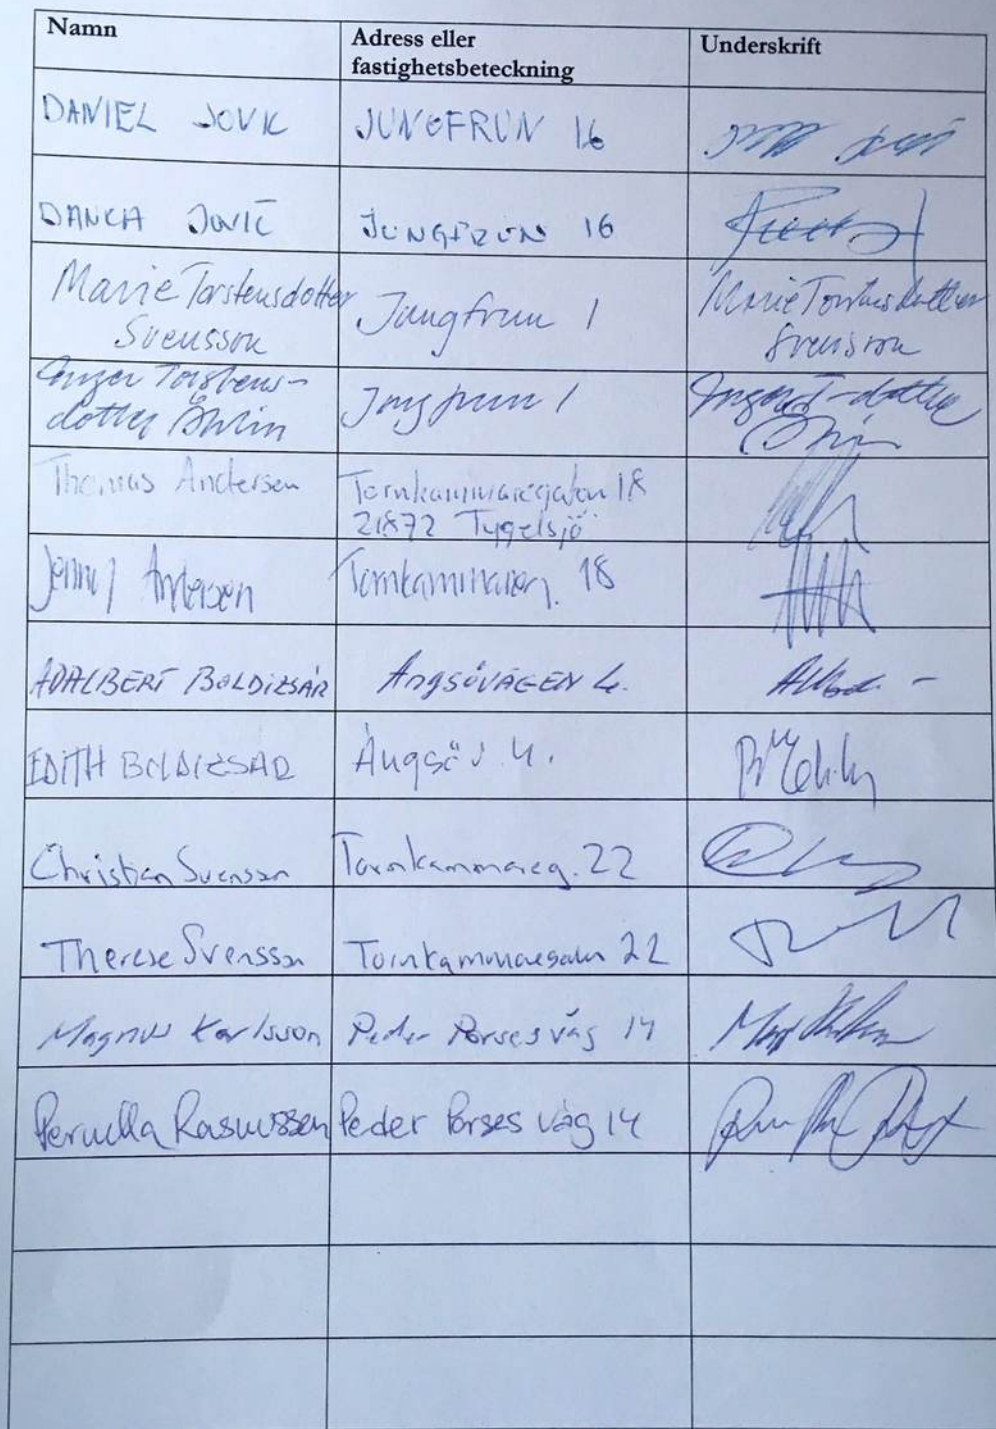 Namn
Adress eller
fastighetsbeteckning
Underskrift
DANIEL JOVIC
JUNGFRUN 16
DANCA JOVIĆ
JUNGFRUN 16
Marie Torstensdotter
Svensson
Jungfrun 1
Marie Torstensdotter
Svensson
Inger Torstens-
dotter
Jungfrun 1
Inger T-dotter
Thomas Andersen
Tornkammaregatan 18
21872 Tygelsjö
Jenny Andersen
18
ADALBERT BOLDIZSÁR
ÄNGSÖVÄGEN 4.
EDITH BOLDIZSAR
Ängsöv. 4.
Christian Svensson
Tornkammareg. 22
Therese Svensson
Tornkammaregatan 22
Magnus Karlsson
Peder Porses väg 14
Pernilla Rasmussen
Peder Porses väg 14